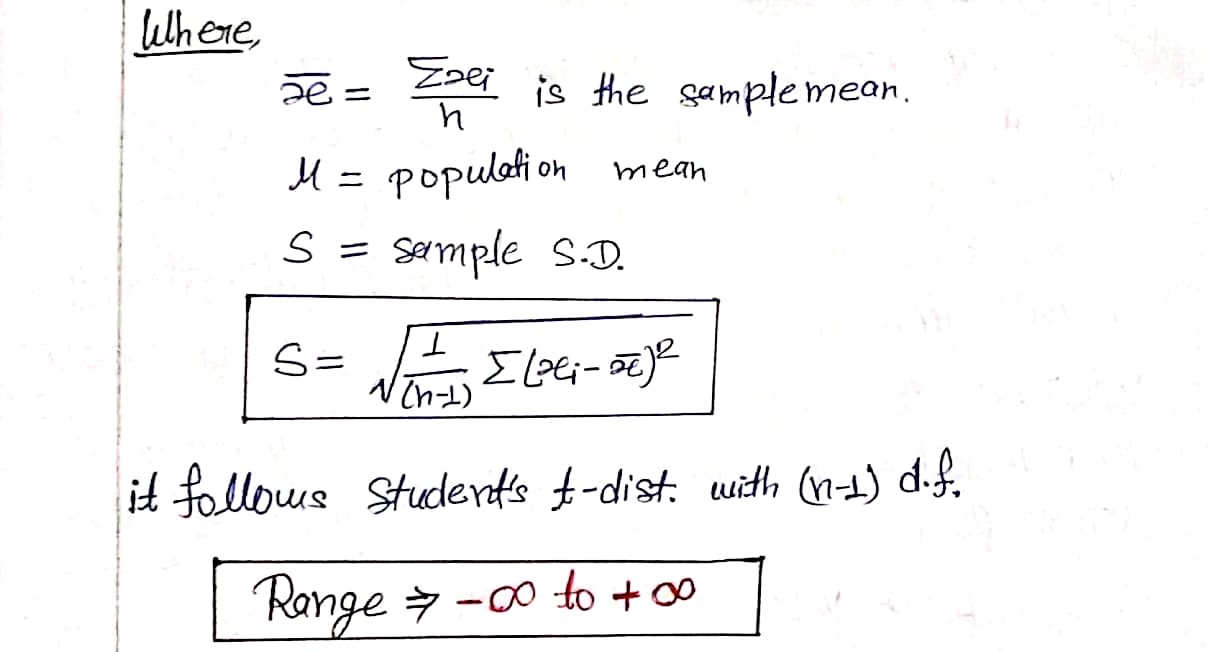 Where,
x̄ = Σxi / n is the sample mean.
μ = population mean
S = sample S.D.
S = √(1/(n-1) Σ(xi - x̄)²)
it follows Student's t-dist. with (n-1) d.f.
Range ⇒ -∞ to +∞